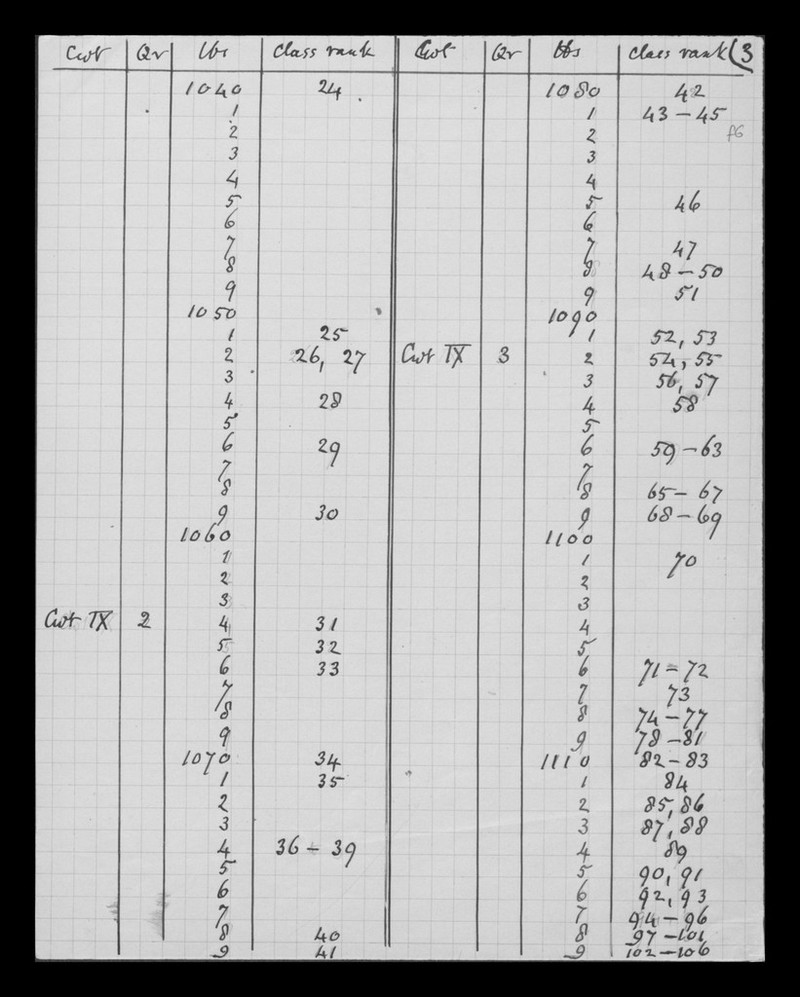 Cwt Qr lbs Class rank Cwt Qr lbs Class rank (3
1040 24 1080 42
1 1 43 – 45
2 2 f6
3 3
4 4
5 5 46
6 6
7 7 47
8 8 48 – 50
9 9 51
1050 1090
1 25 1 52, 53
2 26, 27 Cwt IX 3 2 54, 55
3 3 56, 57
4 28 4 58
5 5
6 29 6 59 – 63
7 7
8 8 65 – 67
9 30 9 68 – 69
1060 1100
1 1 70
2 2
3 3
Cwt IX 2 4 31 4
5 32 5
6 33 6 71 – 72
7 7 73
8 8 74 – 77
9 9 78 – 81
1070 34 1110 82 – 83
1 35 1 84
2 2 85, 86
3 3 87, 88
4 36 – 39 4 89
5 5 90, 91
6 6 92, 93
7 7 94 – 96
8 40 8 97 – 101
9 41 9 102 – 106